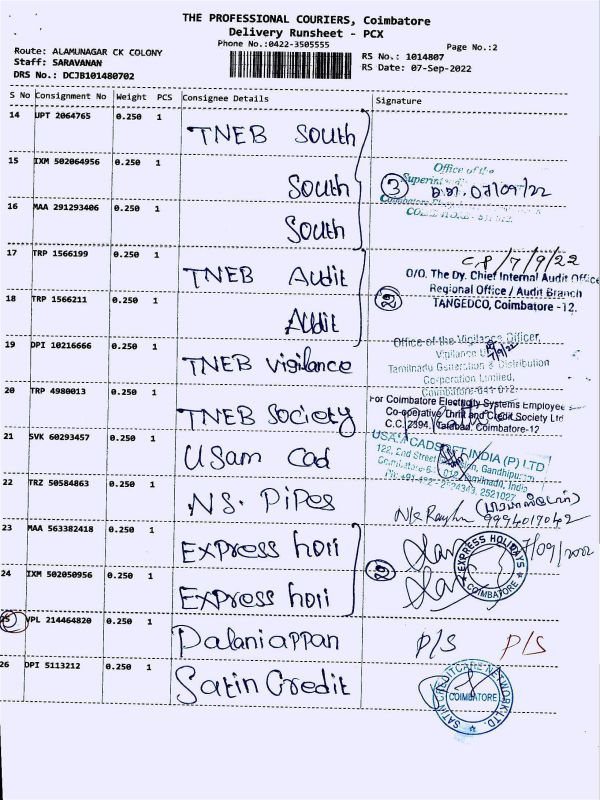 THE PROFESSIONAL COURIERS, Coimbatore
Delivery Runsheet - PCX
Phone No.:0422-3505555
Page No.:2
Route: ALAMUNAGAR CK COLONY
Staff: SARAVANAN
DRS No.: DCJB101480702
RS No.: 1014807
RS Date: 07-Sep-2022
S No Consignment No Weight PCS Consignee Details Signature
14 UPT 2064765 0.250 1 TNEB South
15 IXM 502064956 0.250 1 South
Office of the
3 07/09/22
16 MAA 291293406 0.250 1 South
17 TRP 1566199 0.250 1 TNEB Audit
7/9/22
O/O. The Dy. Chief Internal Audit Office
Regional Office / Audit Branch
TANGEDCO, Coimbatore -12.
18 TRP 1566211 0.250 1 Audit
29
19 DPI 10216666 0.250 1 TNEB vigilance
Office of the Vigilance Officer,
Vigilance
Tamilnadu Generation & Distribution
Corporation Limited,
Coimbatore-641 012.
20 TRP 4980013 0.250 1 TNEB Society
For Coimbatore Electricity Systems Employee
Co-operative Thrift and Credit Society Ltd
C.C. 2394, Tatabad, Coimbatore-12
21 SVK 60293457 0.250 1 Usam Cad
USAM CADSOFT INDIA (P) LTD
122, 2nd Street Gandhipuram
Tamilnadu, India
2521027
22 TRZ 50584863 0.250 1 N.S. Pipes
9994017042
23 MAA 563382418 0.250 1 Express holi
7/09/2022
EXPRESS HOLIDAYS
COIMBATORE
24 IXM 502050956 0.250 1 Express holi
29
25 VPL 214464820 0.250 1 Palaniappan P/S P/S
26 DPI 5113212 0.250 1 Satin Credit
SATIN CREDITCARE NETWORK LTD.
COIMBATORE